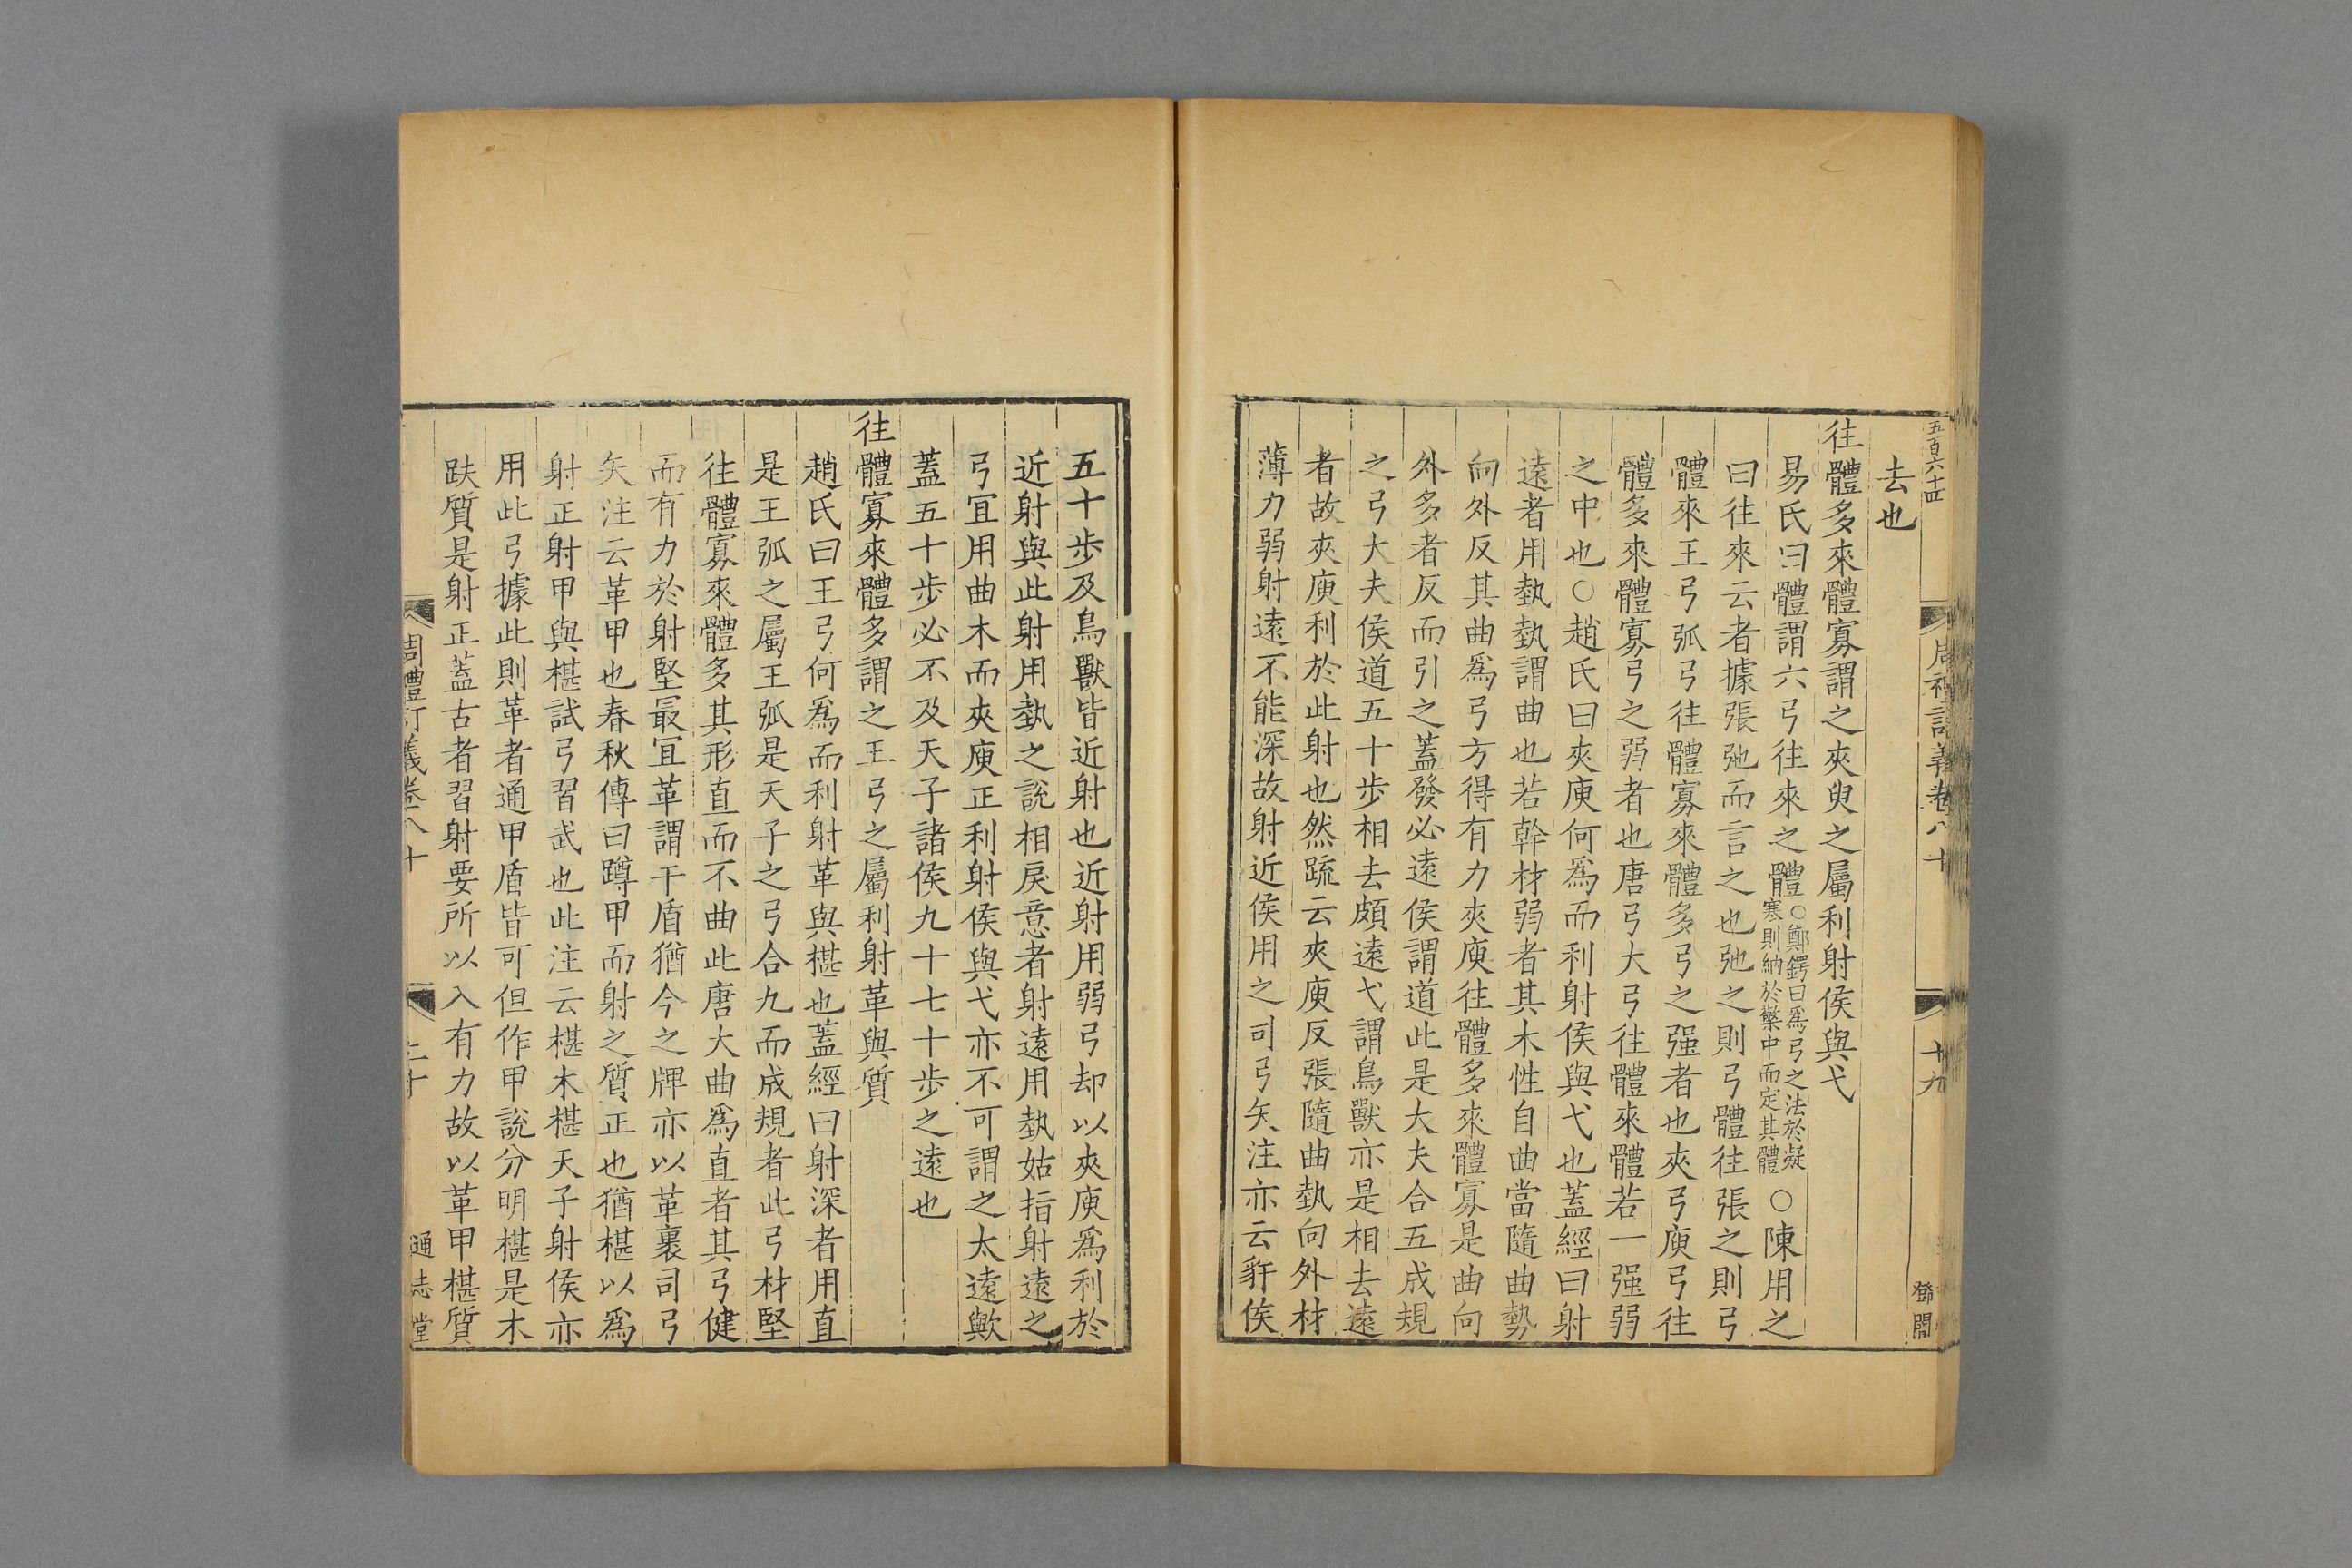 五百六十四
周禮訂義卷八十
十九
鄧閏
去也
往體多來體寡謂之夾臾之屬利射侯與弋
易氏曰體謂六弓往來之體○鄭鍔曰爲弓之法於凝寒則納於檠中而定其體○陳用之
曰往來云者據張弛而言之也弛之則弓體往張之則弓
體來王弓弧弓往體寡來體多弓之强者也夾弓庾弓往
體多來體寡弓之弱者也唐弓大弓往體來體若一强弱
之中也○趙氏曰夾庾何爲而利射侯與弋也蓋經曰射
遠者用埶埶謂曲也若幹材弱者其木性自曲當隨曲勢
向外反其曲爲弓方得有力夾庾往體多來體寡是曲向
外多者反而引之蓋發必遠侯謂道此是大夫合五成規
之弓大夫侯道五十步相去頗遠弋謂鳥獸亦是相去遠
者故夾庾利於此射也然疏云夾庾反張隨曲埶向外材
薄力弱射遠不能深故射近侯用之司弓矢注亦云豻侯
五十步及鳥獸皆近射也近射用弱弓却以夾庾爲利於
近射與此射用埶之說相戾意者射遠用埶姑指射遠之
弓宜用曲木而夾庾正利射侯與弋亦不可謂之太遠歟
蓋五十步必不及天子諸侯九十七十步之遠也
往體寡來體多謂之王弓之屬利射革與質
趙氏曰王弓何爲而利射革與椹也蓋經曰射深者用直
是王弧之屬王弧是天子之弓合九而成規者此弓材堅
往體寡來體多其形直而不曲此唐大曲爲直者其弓健
而有力於射堅最宜革謂干盾猶今之牌亦以革裹司弓
矢注云革甲也春秋傳曰蹲甲而射之質正也猶椹以爲
射正射甲與椹試弓習武也此注云椹木椹天子射侯亦
用此弓據此則革者通甲盾皆可但作甲說分明椹是木
趺質是射正蓋古者習射要所以入有力故以革甲椹質
周禮訂義卷八十
二十
通志堂